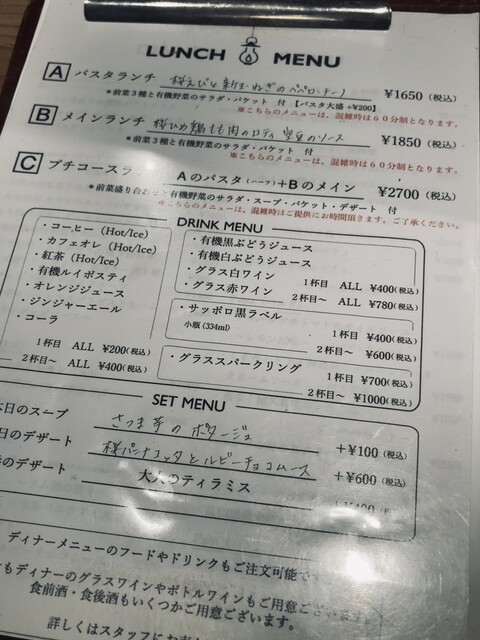 LUNCH MENU
A パスタランチ 桜えびと新玉ねぎのペペロンチーノ ¥1650(税込)
*前菜3種と有機野菜のサラダ・バケット 付 【パスタ大盛 +¥200】
※こちらのメニューは、混雑時は60分制となります。
B メインランチ 桜ひめ鶏もも肉のロティ 空豆のソース ¥1850(税込)
*前菜3種と有機野菜のサラダ・バケット 付
※こちらのメニューは、混雑時は60分制となります。
C プチコース Aのパスタ(ハーフ)+Bのメイン ¥2700(税込)
*前菜盛り合わせと有機野菜のサラダ・スープ・バケット・デザート 付
※こちらのメニューは、混雑時はご提供にお時間頂きます。ご了承ください。
DRINK MENU
・コーヒー(Hot/Ice)
・カフェオレ(Hot/Ice)
・紅茶(Hot/Ice)
・有機ルイボスティ
・オレンジジュース
・ジンジャーエール
・コーラ
1杯目 ALL ¥200(税込)
2杯目~ ALL ¥400(税込)
・有機黒ぶどうジュース
・有機白ぶどうジュース
・グラス白ワイン
・グラス赤ワイン
1杯目 ALL ¥400(税込)
2杯目~ ALL ¥780(税込)
・サッポロ黒ラベル
小瓶(334ml)
1杯目 ¥400(税込)
2杯目~ ¥600(税込)
・グラススパークリング
1杯目 ¥700(税込)
2杯目~ ¥1000(税込)
SET MENU
本日のスープ さつま芋のポタージュ +¥100(税込)
日のデザート 桜パンナコッタとルビーチョコムース +¥600(税込)
のデザート 大人のティラミス
ディナーメニューのフードやドリンクもご注文可能で
もディナーのグラスワインやボトルワインもご用意ございます。
食前酒・食後酒もいくつかご用意ございます。
詳しくはスタッフにお